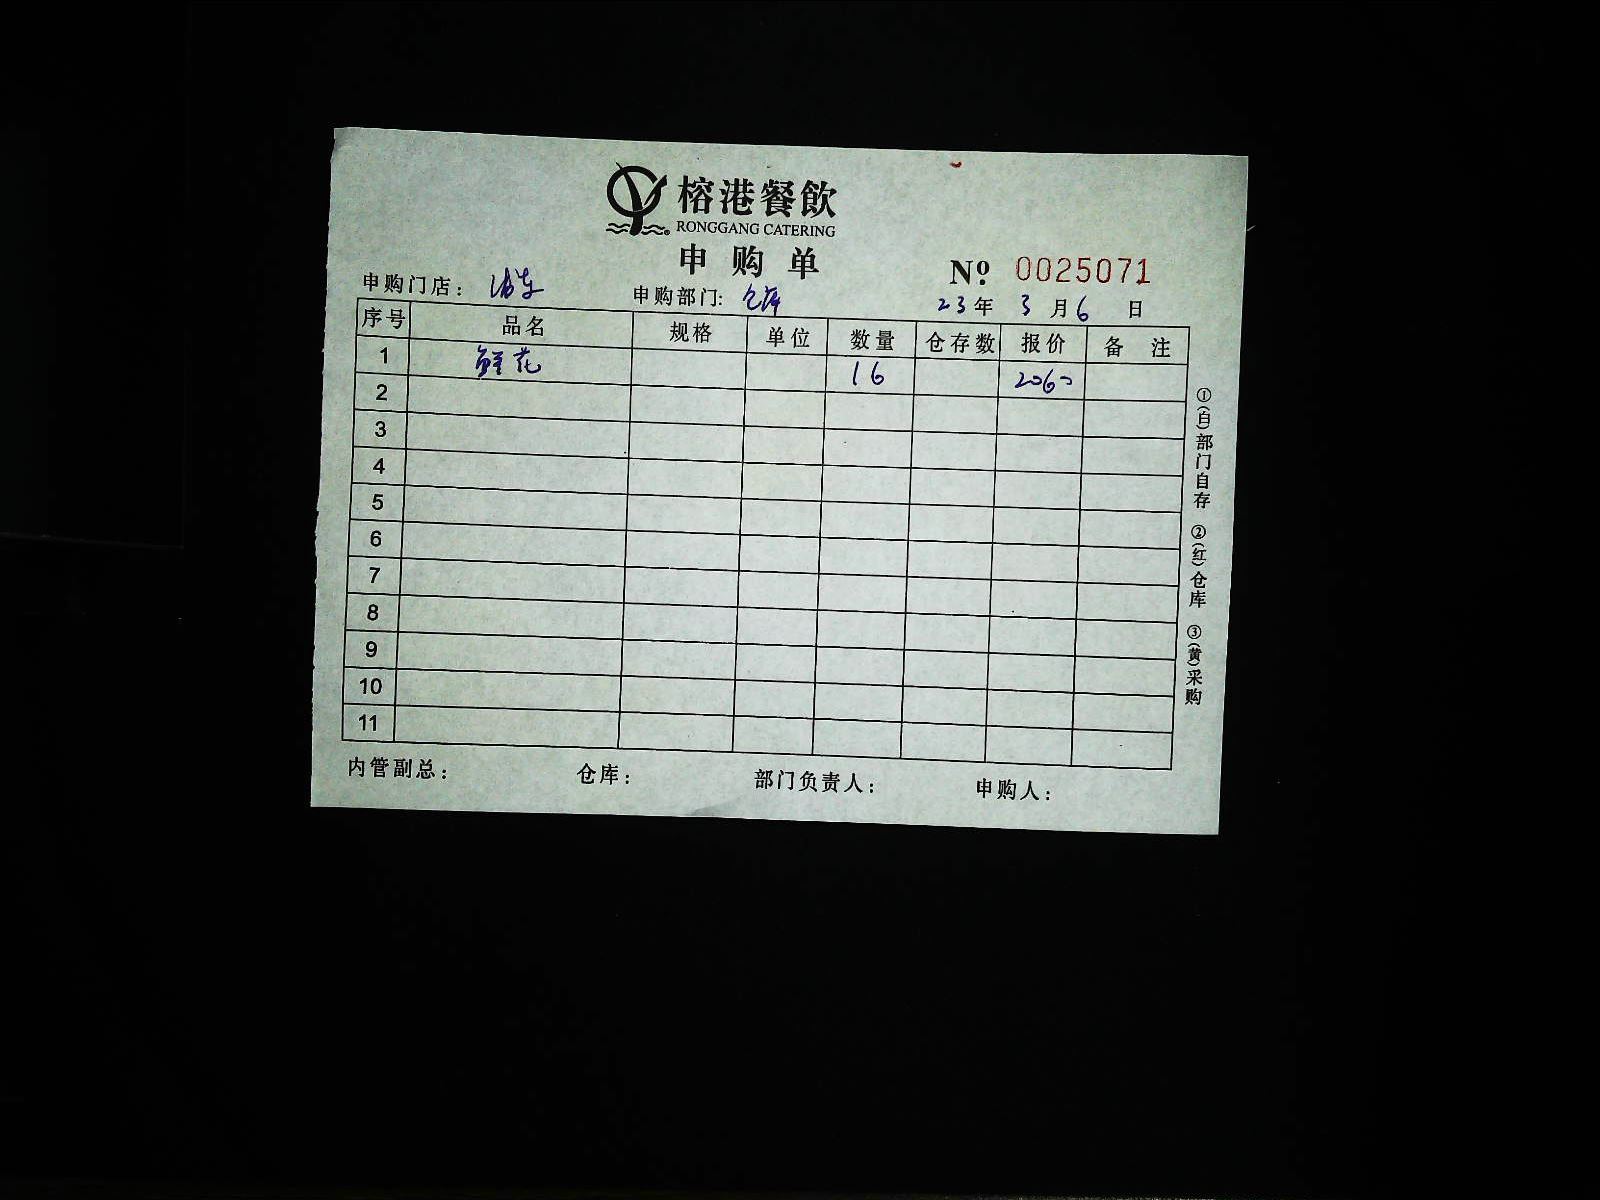 榕港餐飲
RONGGANG CATERING
申购单
Nº 0025071
申购门店：浦东 申购部门：仓库 23年 3月6日
序号 品名 规格 单位 数量 仓存数 报价 备注
1 鲜花 16 2060
2
3
4
5
6
7
8
9
10
11
内管副总： 仓库： 部门负责人： 申购人：
①(白)部门自存 ②(红)仓库 ③(黄)采购